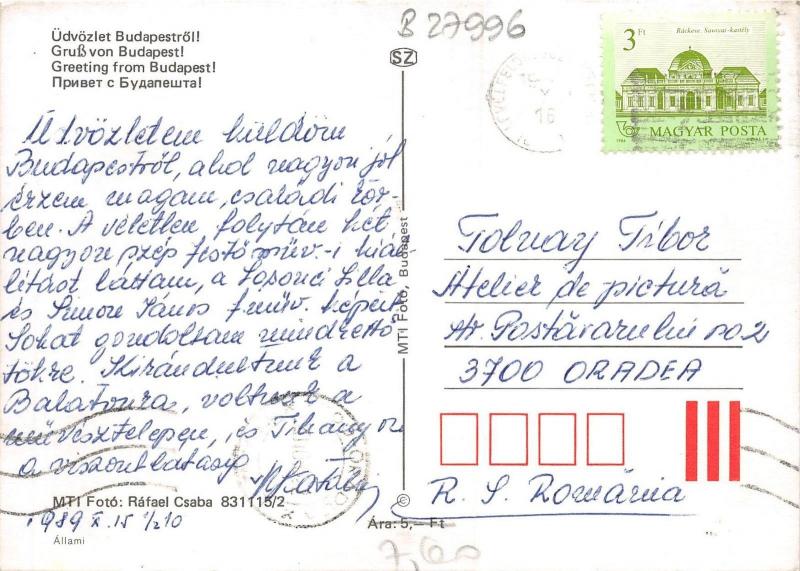 Üdvözlet Budapestről!
Gruß von Budapest!
Greeting from Budapest!
Привет с Будапешта!
SZ
B 27996
3 Ft
Ráckeve. Savoyai-kastély
MAGYAR POSTA
1986
Üdvözletem küldöm
Budapestről, ahol nagyon jól
érzem magam, családi kör-
ben. A véletlen folytán két
nagyon szép festőműv.-i kiál
lítást láttam, a Losonci Lilla
és Simon János f.műv. képeit.
Sokat gondoltam mindkettő
tökre. Kirándultunk a
Balatonra, voltunk a
művésztelepen, és Tihanyon
a viszontlátásig
MTI Fotó: Ráfael Csaba 831115/2
1989 X. 15 1/2 10
Állami
MTI Fotó, Budapest
©
Ára: 5,– Ft
7,60
Tolnay Tibor
Atelier de pictură
Str. Postăvarului no 2
3700 ORADEA
R. S. România